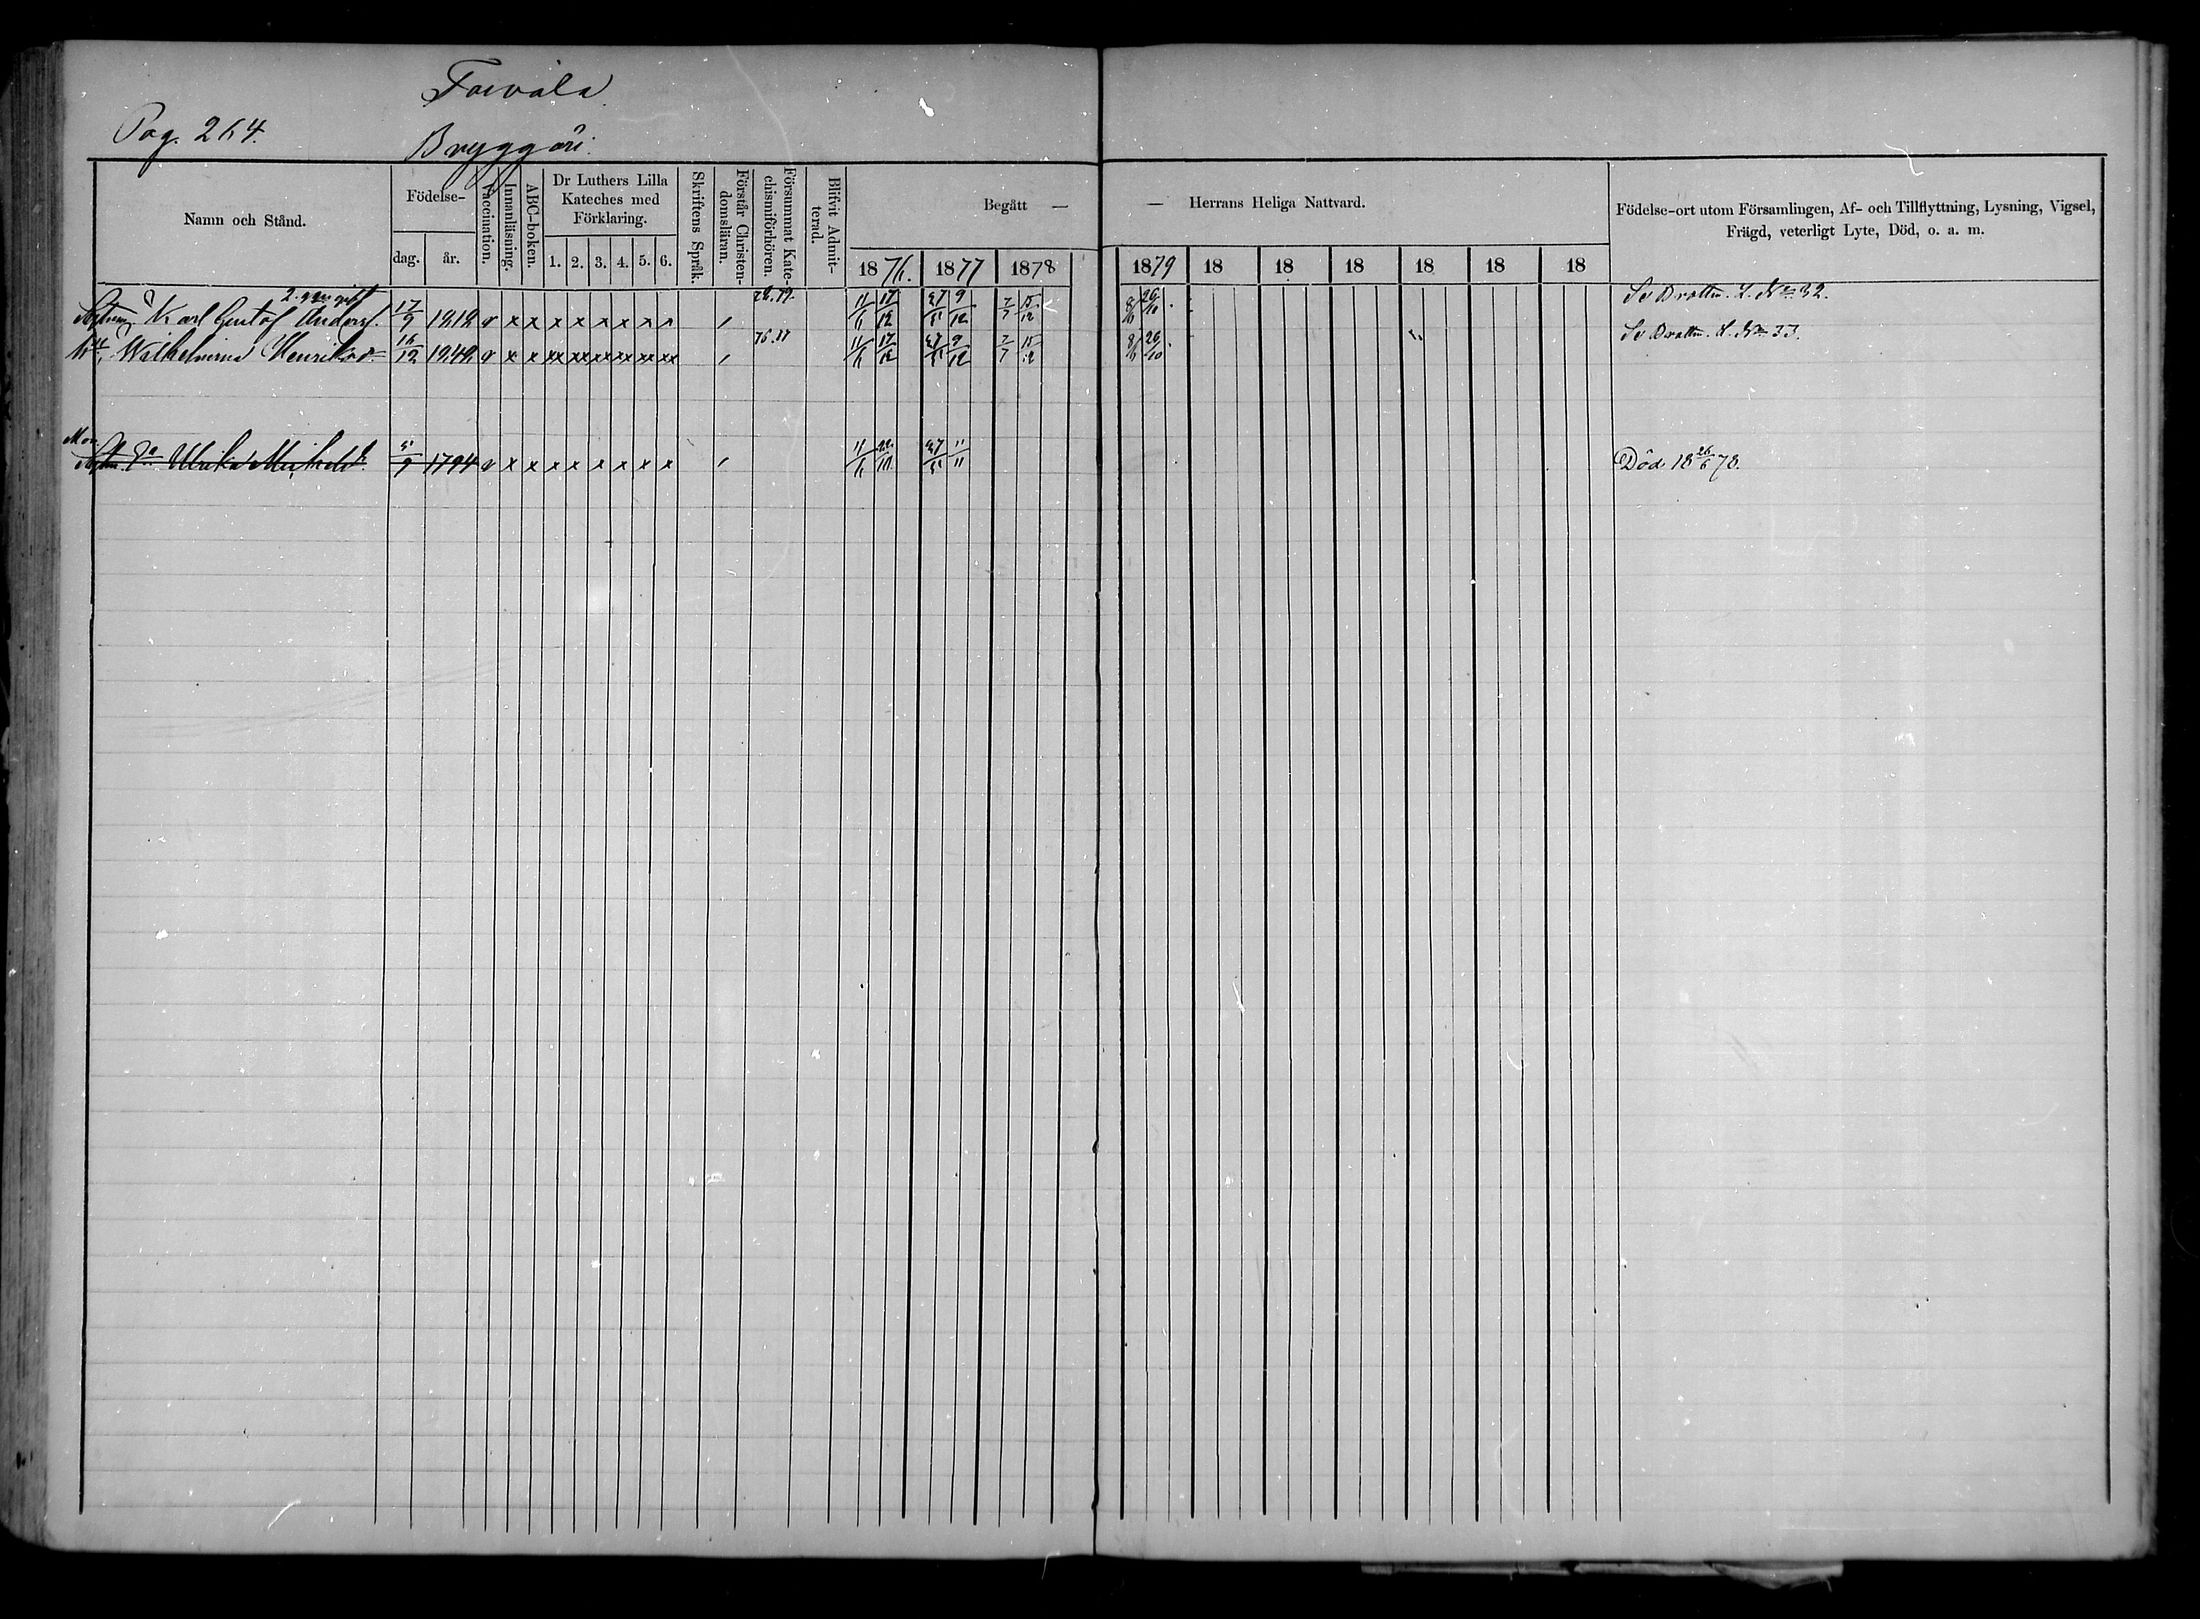 Pag. 264.
Bryggöri.
Namn och Stånd.
Födelse-
dag.
år.
Vaccination.
Innanläsning.
ABC-boken.
Dr Luthers Lilla
Kateches med
Förklaring.
1. 2. 3. 4. 5. 6.
Skriftens Språk.
Förstår Christen-
domsläran.
Försummat Kate-
chismiförhören.
Blifvit Admit-
terad.
Begått —
— Herrans Heliga Nattvard.
1876. 1877 1878 1879 18 18 18 18 18 18
Födelse-ort utom Församlingen, Af- och Tillflyttning, Lysning, Vigsel,
Frägd, veterligt Lyte, Död, o. a. m.
2. ggr gift
Karl Gustaf Anders. 17/9 v x x x x x x x x 78.79. 11/6 17/12 27/5 9/12 7/7 15/12 8/6 26/10 Se Brottm. L. No 32.
Wilhelmina Henriksd. 16/12 v x x xx xx xx xx xx xx 11/6 17/12 27/5 9/12 7/7 15/12 8/6 26/10 Se Brottm. L. No 33.
Mor
Ulrika Mickelsd. 5/9 1794 v x x x x x x x x 11/6 27/5 11/11 Död 18 26/6 78.